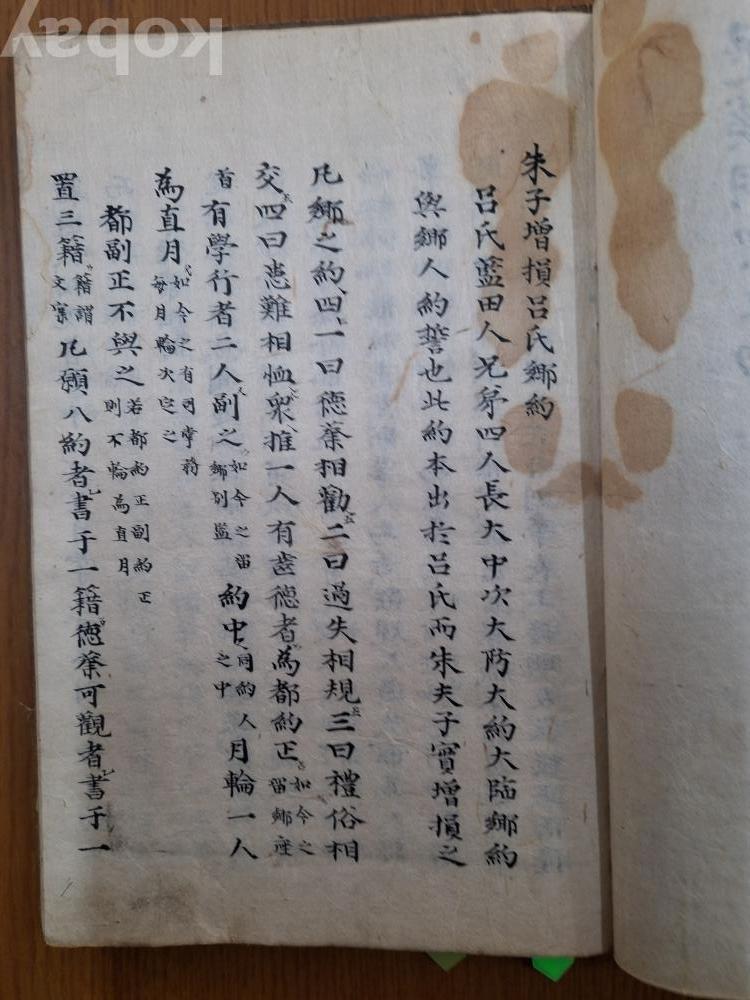 朱子增損呂氏鄉約
呂氏藍田人兄弟四人長大中次大防大約大臨鄉約
與鄉人約誓也此約本出於呂氏而朱夫子實增損之
凡鄉之約四一曰德業相勸二曰過失相規三曰禮俗相
交四曰患難相恤衆推一人有齒德者爲都約正如今之留鄉座
首有學行者二人副之如今之留鄉別監約中同約人之中月輪一人
爲直月如今之有司掌務每月輪次定之
都副正不與之若都約正副約正則不輪爲直月
置三籍籍謂文案凡願入約者書于一籍德業可觀者書于一
kobay